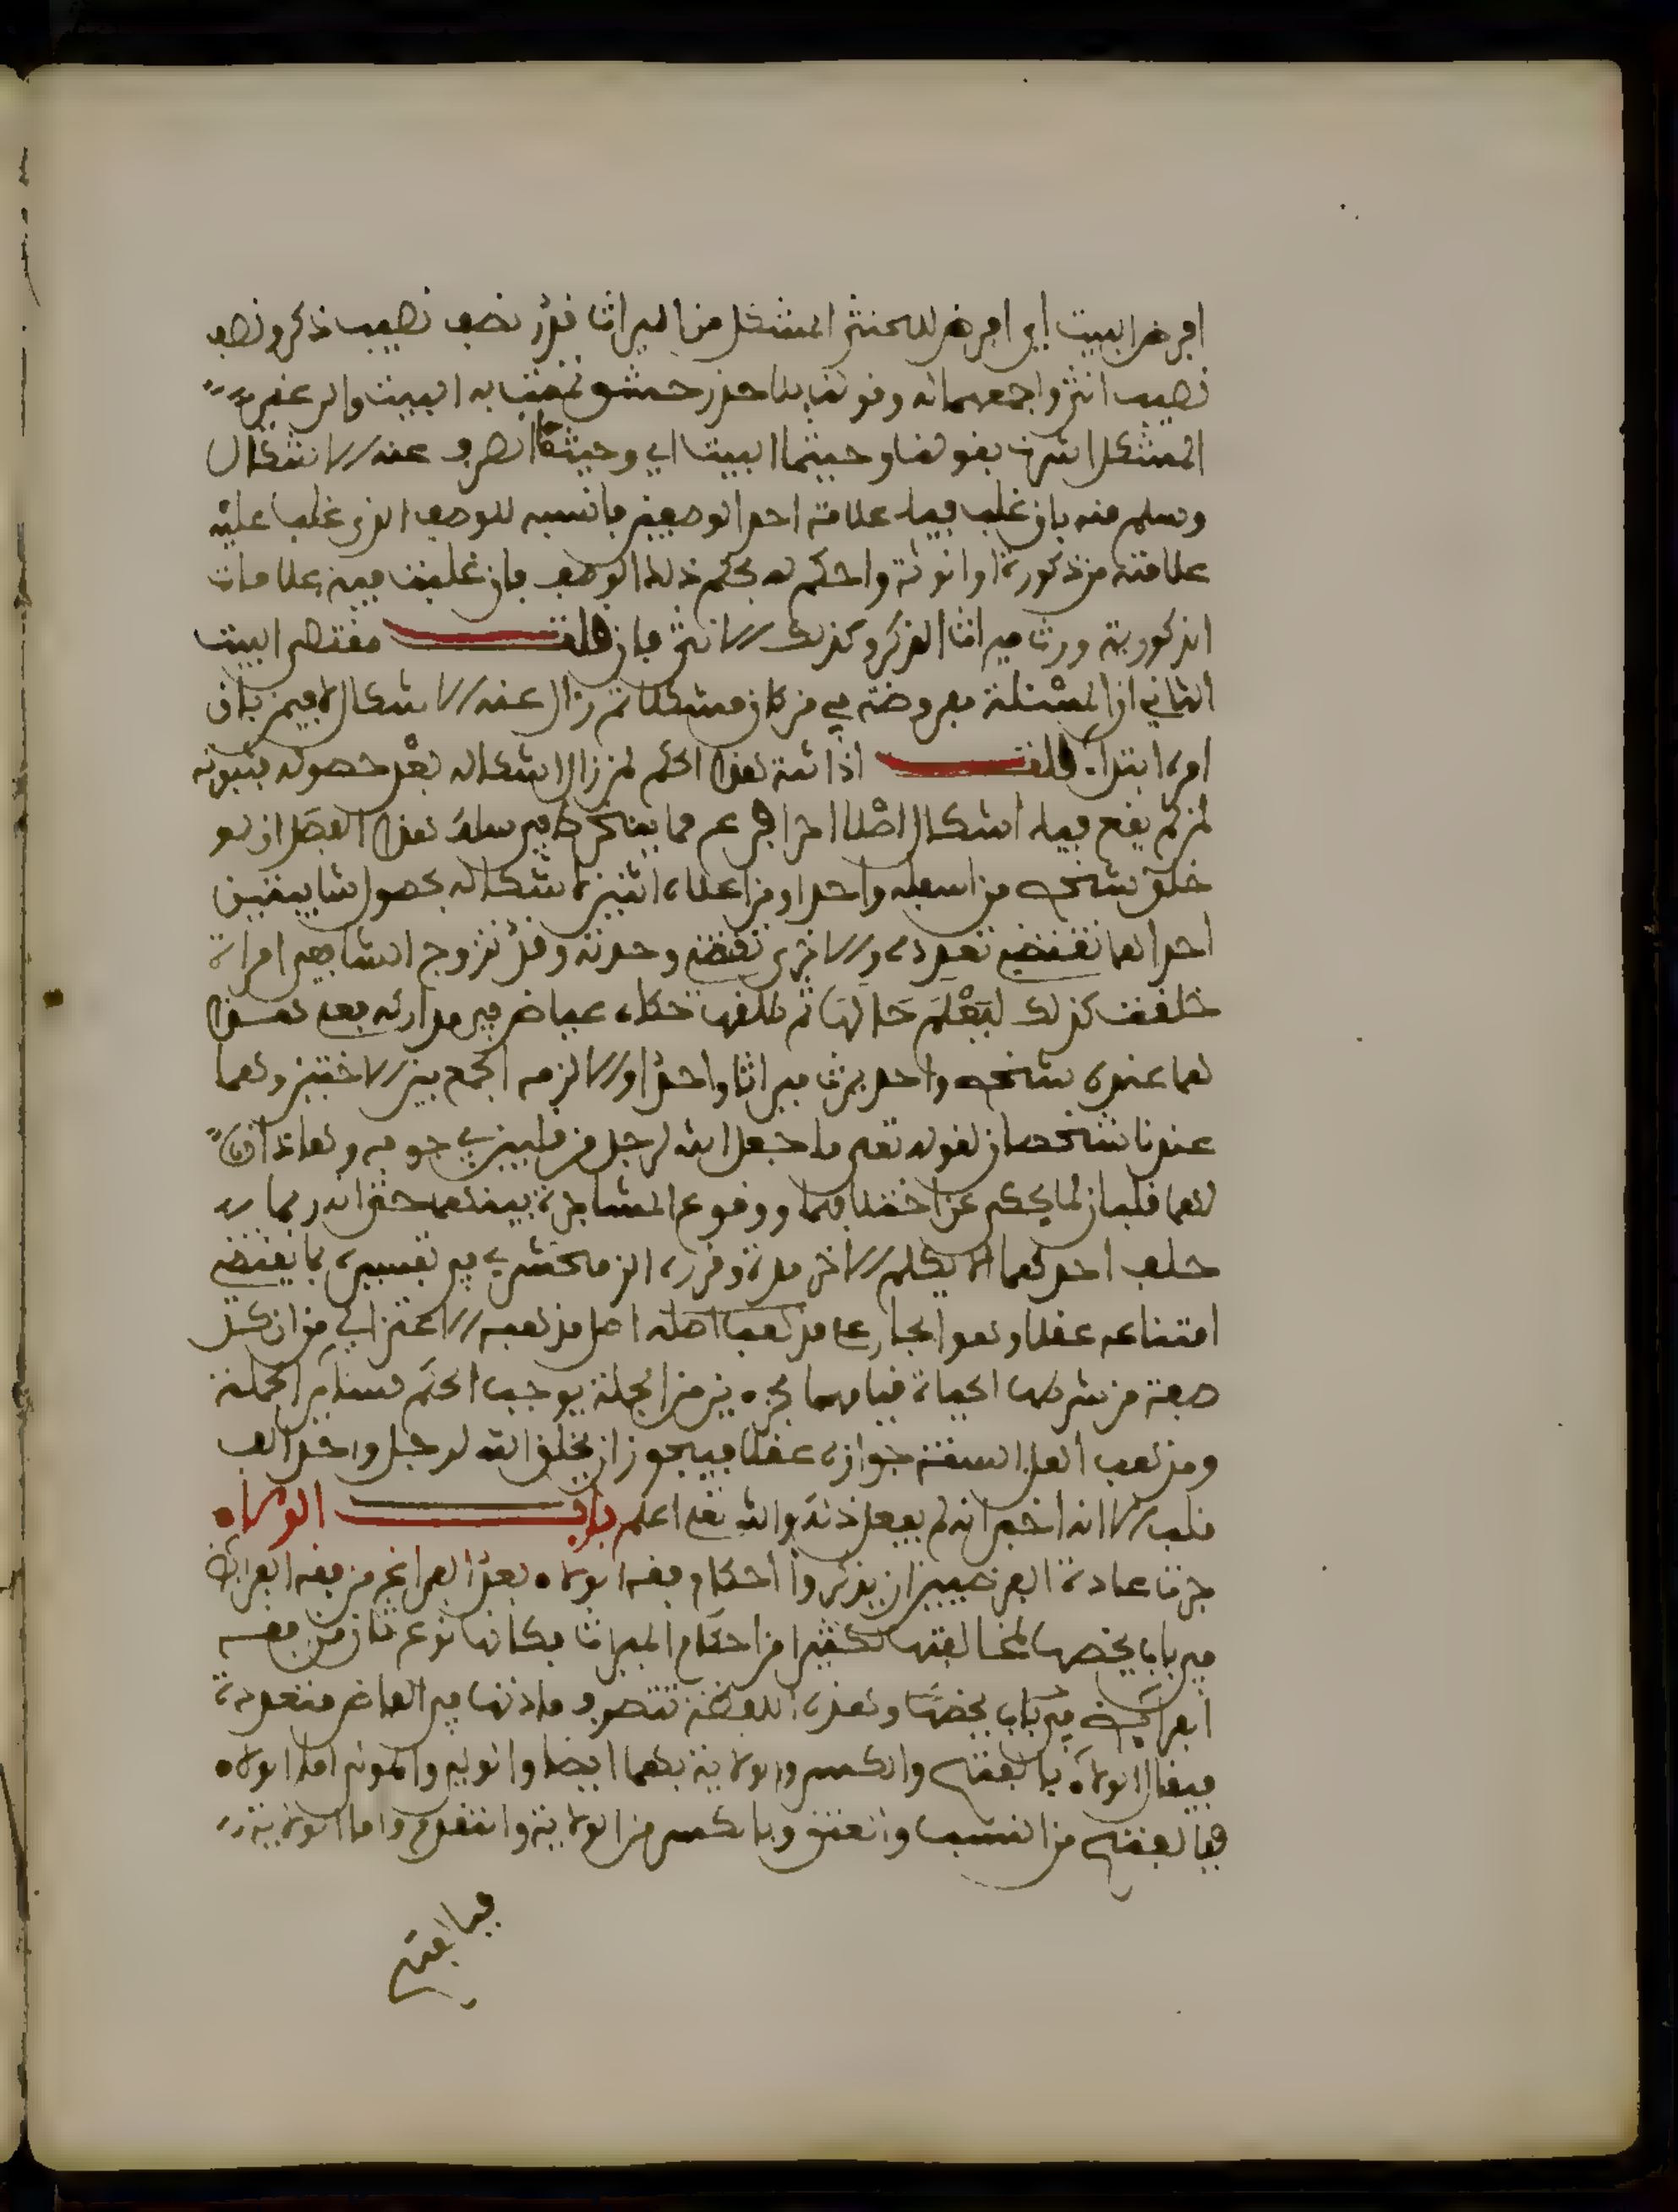 افرض البيت اي افرض للخنثى المشكل من الميراث قدر نصف نصيب ذكر ونصف
نصيب انثى واجمعهما له وقولنا بلا حذر حشو تممت به البيت والى غير
المشكل اشرت بقولنا وحيثما البيت اي وحيثما انصرف عنه الاشكال
وسلم منه بان غلب فيه علامة احد الوصفين فانسبه للوصف الذي غلب عليه
علامته من ذكورة او انوثة واحكم له بحكم ذلك الوصف فان غلبت فيه علامات
الذكورية ورث ميراث الذكر وكذلك الانثى فان قلت مقتضى البيت
الثاني ان المسئلة مفروضة في من كان مشكلا ثم زال عنه الاشكال لا فيمن بان
امره ابتداء قلت اذا ثبت هذا الحكم لمن زال اشكاله بعد حصوله فثبوته
لمن لم يقع فيه اشكال اصلا احرى فرع مما ينخرط في سلك هذا الفصل ان لو
خلق شخص من اسفله واحد او من اعلاه اثنين اشكاله بحصول شايبتين
احداهما تقتضي تعدده والاخرى تقتضي وحدته وقد تزوج الشافعي امراة
خلقت كذلك ليعلم حالها ثم طلقها حكاه عياض في مداركه فعلى هذا
هما عنده شخص واحد يرث ميراثا واحدا والا لزمه الجمع بين الاختين وهما
عندنا شخصان لقوله تعالى ما جعل الله لرجل من قلبين في جوفه وهاذان
لهما قلبان لما يحكى عن اختلافهما ووقوع المشاجرة بينهما حتى انه ربما
حلف احدهما الا يكلم الاخر مدة وقرره الزمخشري في تفسيره بما يقتضي
امتناعه عقلا وهو الجاري على مذهب اصله اصل مذهبه الاعتزالي من ان كل
صفة من شرطها الحياة قيامها بجزء من الجملة يوجب الحكم لسائر الجملة
ومذهب اهل السنة جوازه عقلا فيجوز ان يخلق الله لرجل واحد الف
قلب الا انه اخبر انه لم يفعل ذلك والله تعلى اعلم باب الولاء
جرت عادة الفرضيين ان يذكروا احكام فقه الولاء بعد الفراغ من فقه الفرائض
في باب يخصها لمخالفتها لكثير من احكام الميراث فكانها نوع ثان من فقه
الفرائض في باب يخصها وهذه اللفظة تتصرف مادتها في الفاظ متعددة
فيقال الولاء بالفتح والكسر والولاية بهما ايضا والولي والمولى اما الولاء
فبالفتح من النسب والعتق وبالكسر من الولاية والتقدم واما الولاية
فبالفتح